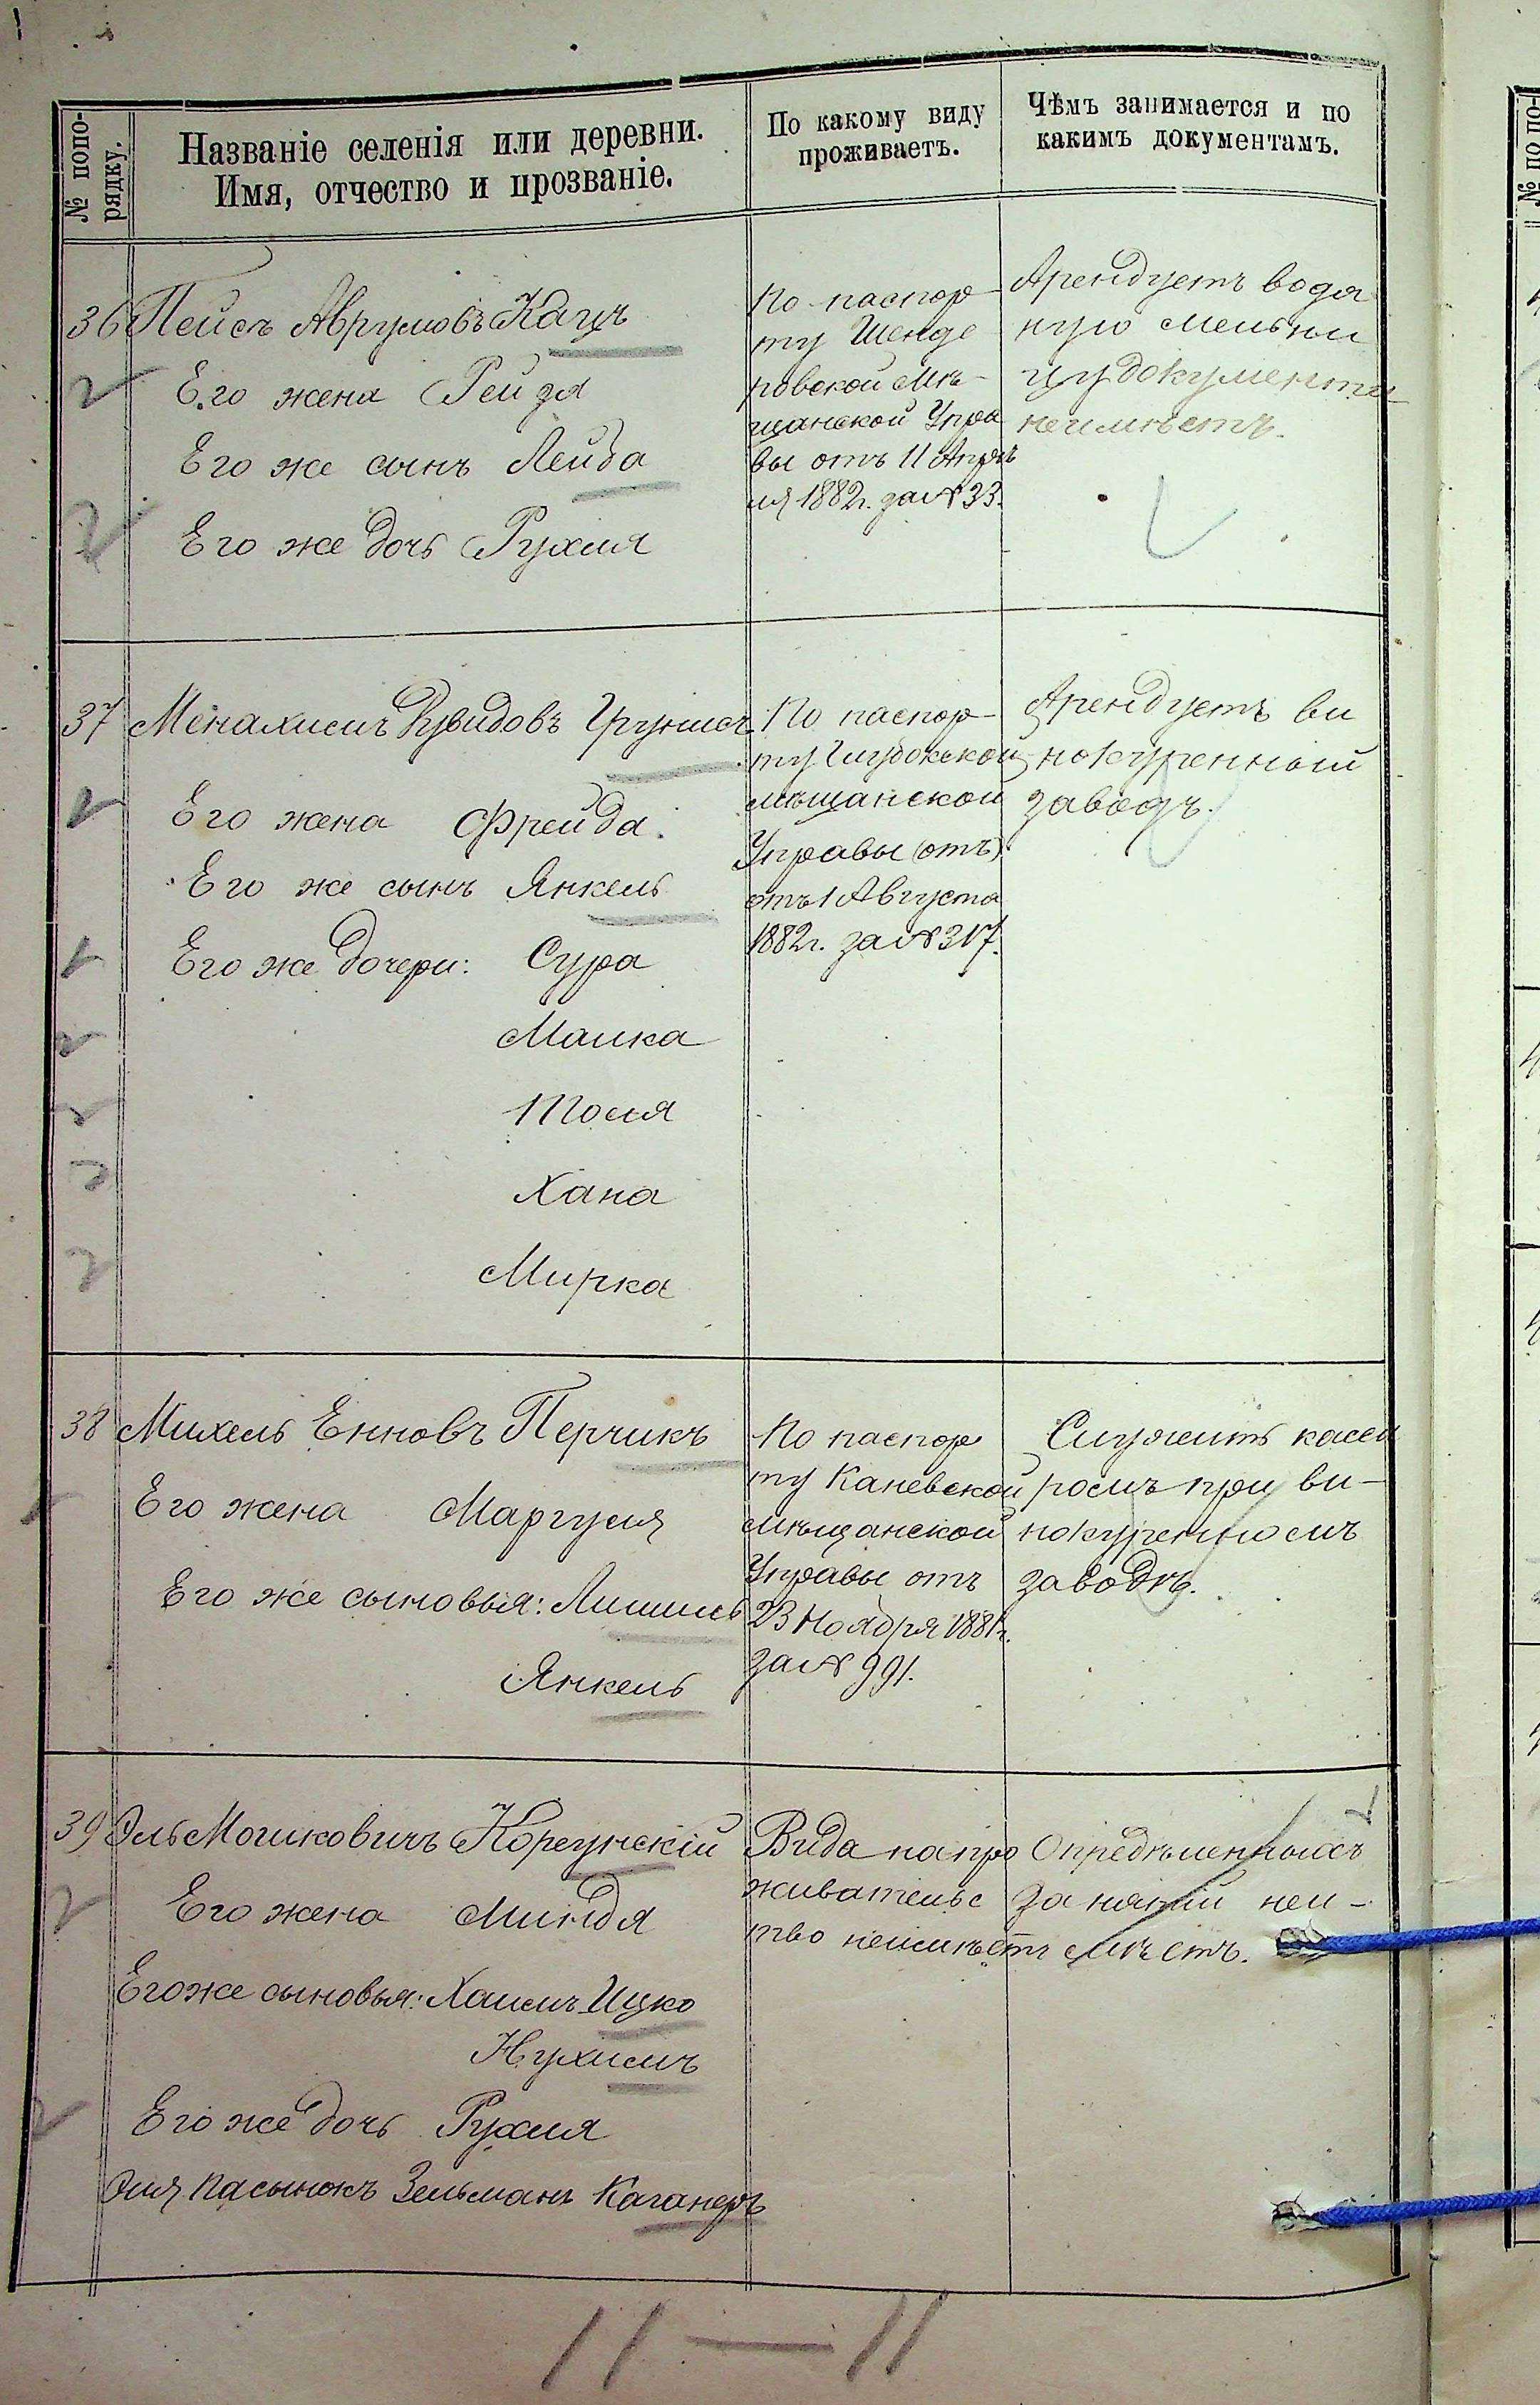 № попо-
рядку.
Названіе селенія или деревни.
Имя, отчество и прозваніе.
По какому виду
проживаетъ.
Чѣмъ занимается и по
какимъ документамъ.
36 Пейсъ Аврумовъ Кацъ
Его жена Рейзя
Его же сынъ Лейба
Его же дочь Рухля
По паспор-
ту Шенде
ровской Мѣ-
щанской Упра
вы отъ 11 Апрѣ
ля 1882г. за № 33.
Арендуетъ водя
ную мельни
цу документа
неимѣетъ.
37 Менахимъ Рувидовъ
Его жена Фрейда.
Его же сынъ Янкель
Его же дочери: Сура
Малка
Толя
Хана
Мирка
По паспор-
ту
мѣщанской
Управы (отъ)
отъ 1 Августа
1882г. за № 317.
Арендуетъ ви
нокуренный
заводъ.
38 Михель Енновъ Перчикъ
Его жена Маргуля
Его же сыновья:
Янкель
По паспор
ту Каневской
мѣщанской
Управы отъ
23 Ноября 1881г.
за № 991.
Служитъ касси
ромъ при ви-
нокуренномъ
заводѣ.
39 Эль Мошковичъ Корсунскій
Его жена Миндя
Его же сыновья: Хаимъ Ицко
Нухимъ
Его же дочь Рухля
Эля пасынокъ Зельманъ Каганеръ
Вида на про
живательс
тво неимѣетъ
Опредѣленныхъ
занятій неи-
мѣетъ.
11 — 11
№ по по-